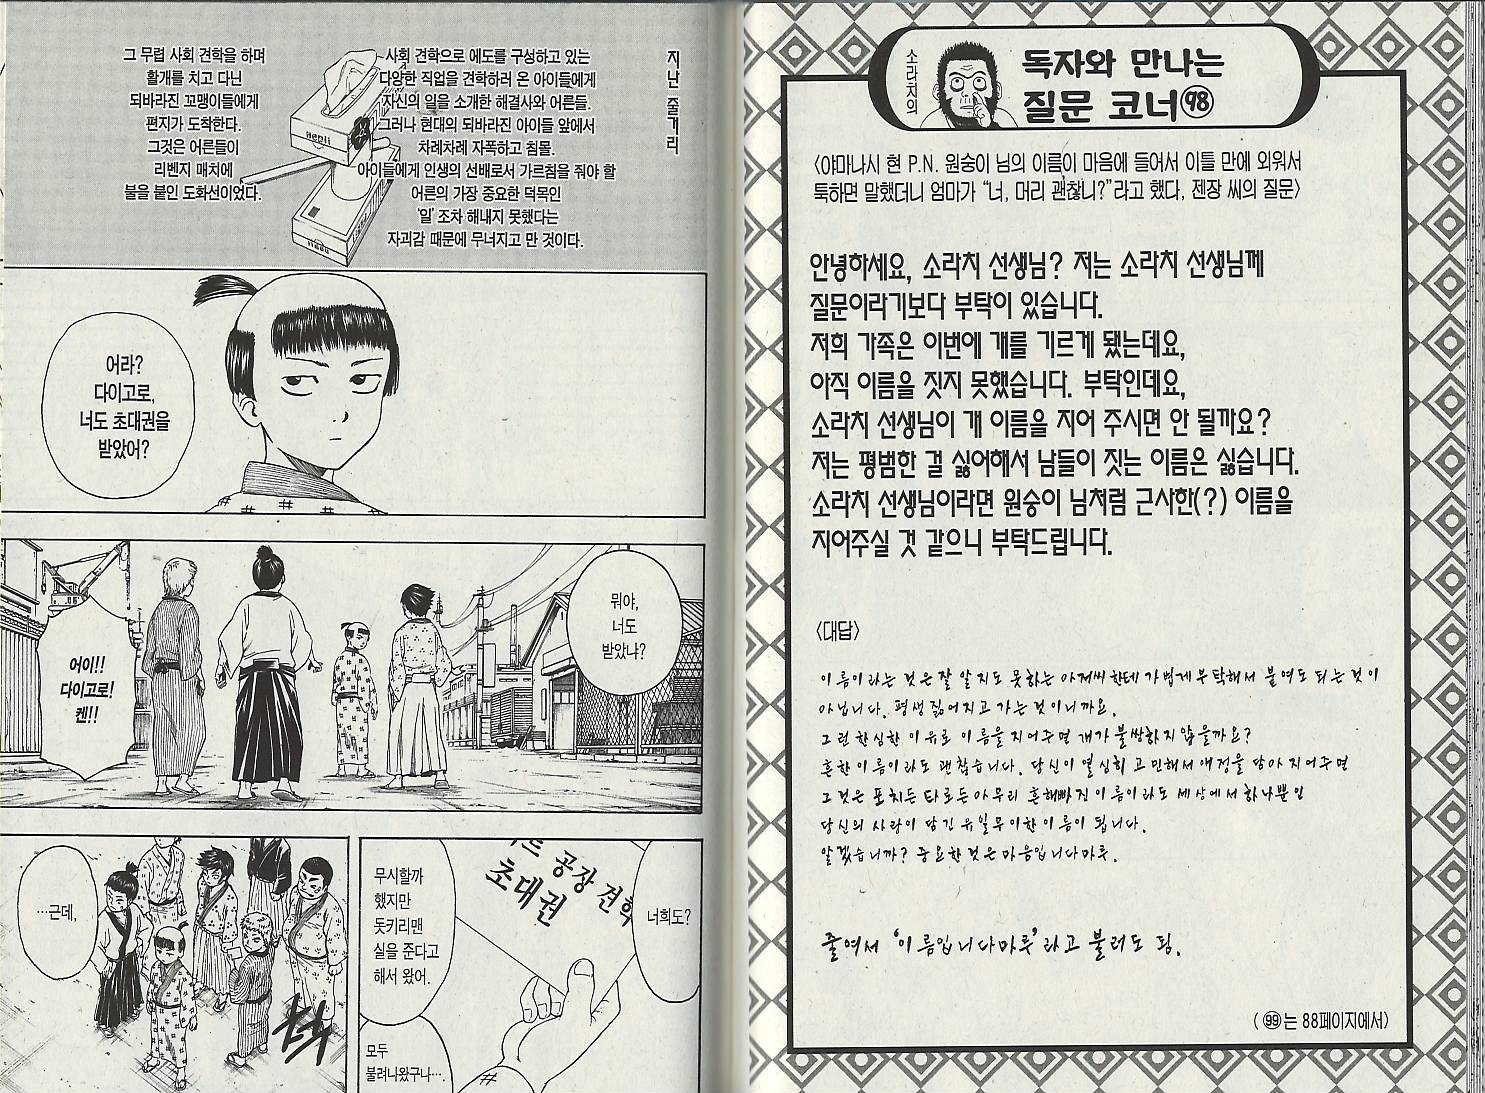 지난 줄거리
사회 견학으로 에도를 구성하고 있는
다양한 직업을 견학하러 온 아이들에게
자신의 일을 소개한 해결사와 어른들.
그러나 현대의 되바라진 아이들 앞에서
차례차례 자폭하고 침몰.
아이들에게 인생의 선배로서 가르침을 줘야 할
어른의 가장 중요한 덕목인
'일' 조차 해내지 못했다는
자괴감 때문에 무너지고 만 것이다.
그 무렵 사회 견학을 하며
활개를 치고 다닌
되바라진 꼬맹이들에게
편지가 도착한다.
그것은 어른들이
리벤지 매치에
불을 붙인 도화선이었다.
어라?
다이고로,
너도 초대권을
받았어?
뭐야,
너도
받았냐?
어이!!
다이고로!
켄!!
너희도?
공장 견학
초대권
무시할까
했지만
돗키리맨
실을 준다고
해서 왔어.
모두
불려나왔구나….
…근데,
소라치의
독자와 만나는
질문 코너 98
〈야마나시 현 P.N. 원숭이 님의 이름이 마음에 들어서 이틀 만에 외워서
툭하면 말했더니 엄마가 “너, 머리 괜찮니?”라고 했다, 젠장 씨의 질문〉
안녕하세요, 소라치 선생님? 저는 소라치 선생님께
질문이라기보다 부탁이 있습니다.
저희 가족은 이번에 개를 기르게 됐는데요,
아직 이름을 짓지 못했습니다. 부탁인데요,
소라치 선생님이 개 이름을 지어 주시면 안 될까요?
저는 평범한 걸 싫어해서 남들이 짓는 이름은 싫습니다.
소라치 선생님이라면 원숭이 님처럼 근사한(?) 이름을
지어주실 것 같으니 부탁드립니다.
〈대답〉
이름이라는 것은 잘 알지도 못하는 아저씨한테 가볍게 부탁해서 붙여도 되는 것이
아닙니다. 평생 짊어지고 가는 것이니까요.
그런 한심한 이유로 이름을 지어주면 개가 불쌍하지 않을까요?
흔한 이름이라도 괜찮습니다. 당신이 열심히 고민해서 애정을 담아 지어주면
그것은 포치든 타로든 아무리 흔해빠진 이름이라도 세상에서 하나뿐인
당신의 사랑이 담긴 유일무이한 이름이 됩니다.
알겠습니까? 중요한 것은 마음입니다마루.
줄여서 '이름입니다마루'라고 불러도 됨.
( 99는 88페이지에서)